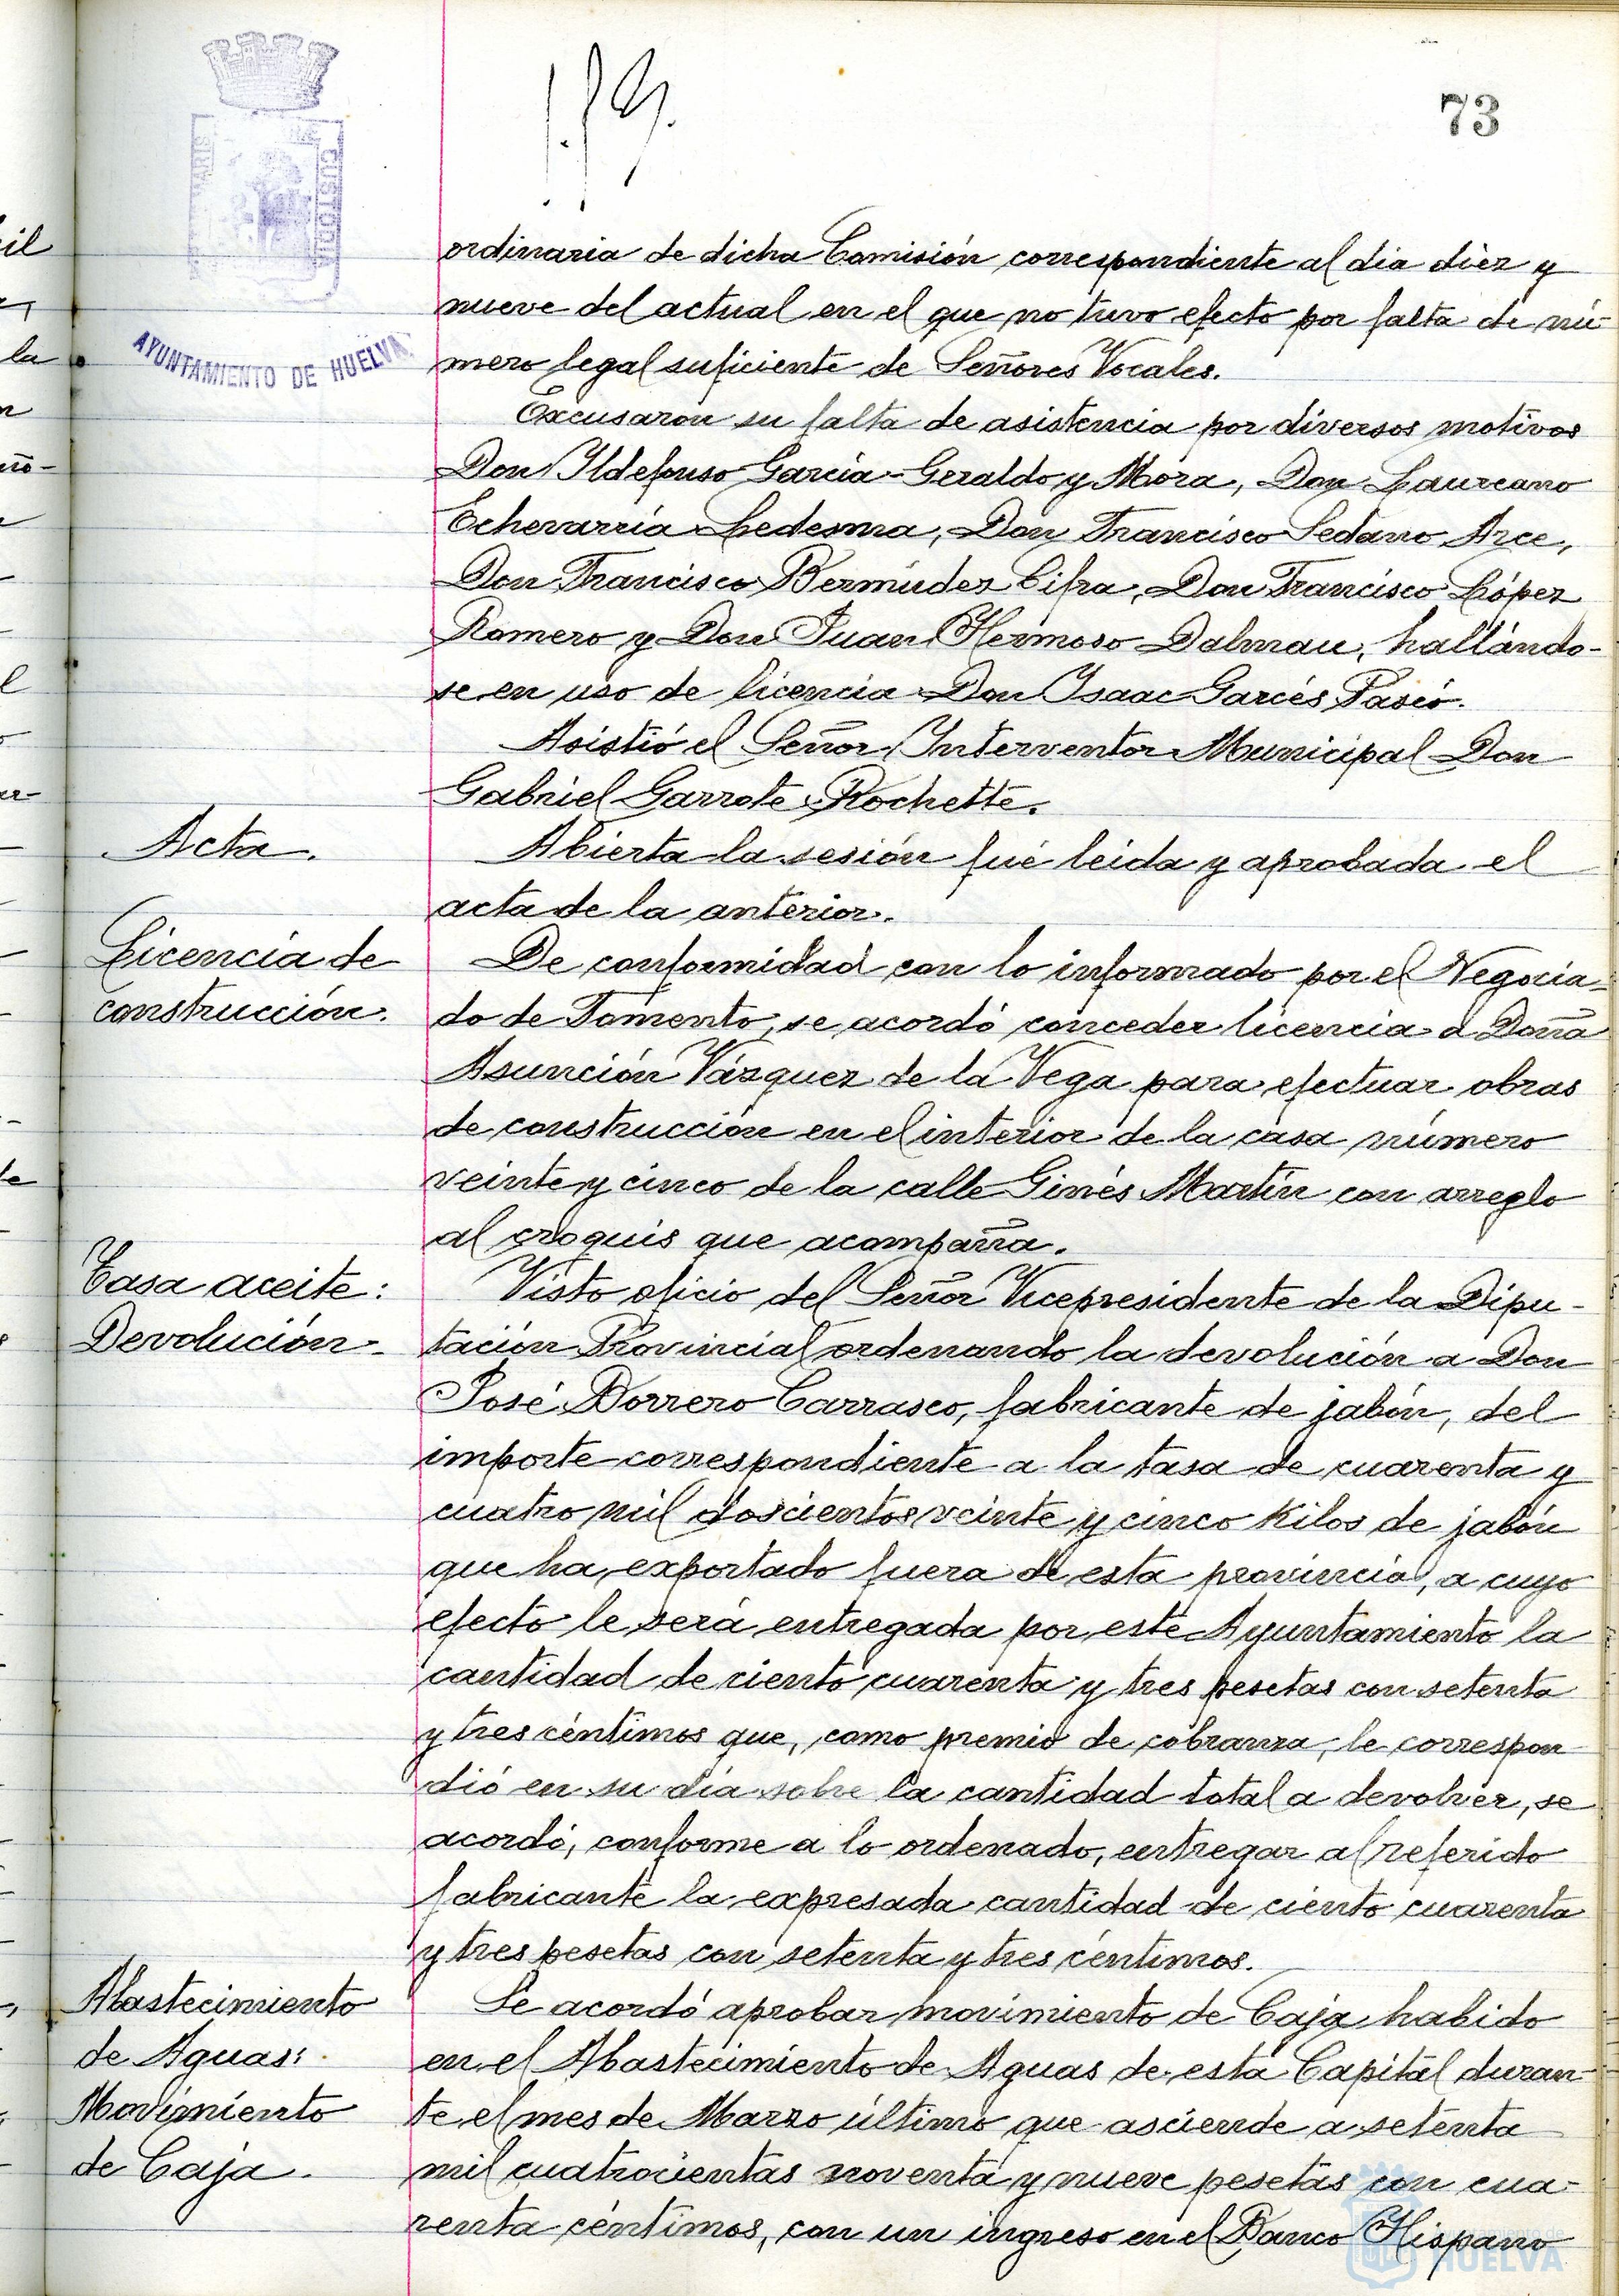 73
AYUNTAMIENTO DE HUELVA
ordinaria de dicha Comisión correspondiente al dia diez y
nueve del actual en el que no tuvo efecto por falta de nú-
mero legal suficiente de Señores Vocales.
Excusaron su falta de asistencia por diversos motivos
Don Ildefonso García-Geraldo y Mora, Don Laureano
Echevarría Ledesma, Don Francisco Sedano Arce,
Don Francisco Bermúdez Cifra, Don Francisco López
Romero y Don Juan Hermoso Dalmau, hallándo-
se en uso de licencia Don Isaac Garcés Paseó.
Asistió el Señor Interventor Municipal Don
Gabriel Garrote Rochette.
Acta.
Abierta la sesión fué leida y aprobada el
acta de la anterior.
Licencia de
construcción.
De conformidad con lo informado por el Negocia-
do de Fomento, se acordó conceder licencia a Doña
Asunción Vázquez de la Vega para efectuar obras
de construcción en el interior de la casa número
veinte y cinco de la calle Ginés Martín con arreglo
al croquis que acompaña.
Tasa aceite:
Devolución-
Visto oficio del Señor Vicepresidente de la Dipu-
tación Provincial ordenando la devolución a Don
José Borrero Carrasco, fabricante de jabón, del
importe correspondiente a la tasa de cuarenta y
cuatro mil doscientos veinte y cinco kilos de jabón
que ha exportado fuera de esta provincia, a cuyo
efecto le será entregada por este Ayuntamiento la
cantidad de ciento cuarenta y tres pesetas con setenta
y tres céntimos que, como premio de cobranza, le correspon
dió en su día sobre la cantidad total a devolver, se
acordó, conforme a lo ordenado, entregar al referido
fabricante la expresada cantidad de ciento cuarenta
y tres pesetas con setenta y tres céntimos.
Abastecimiento
de Aguas:
Movimiento
de Caja.
Se acordó aprobar movimiento de Caja habido
en el Abastecimiento de Aguas de esta Capital duran-
te el mes de Marzo último que asciende a setenta
mil cuatrocientas noventa y nueve pesetas con cua-
renta céntimos, con un ingreso en el Banco Hispano
Ayuntamiento de
HUELVA